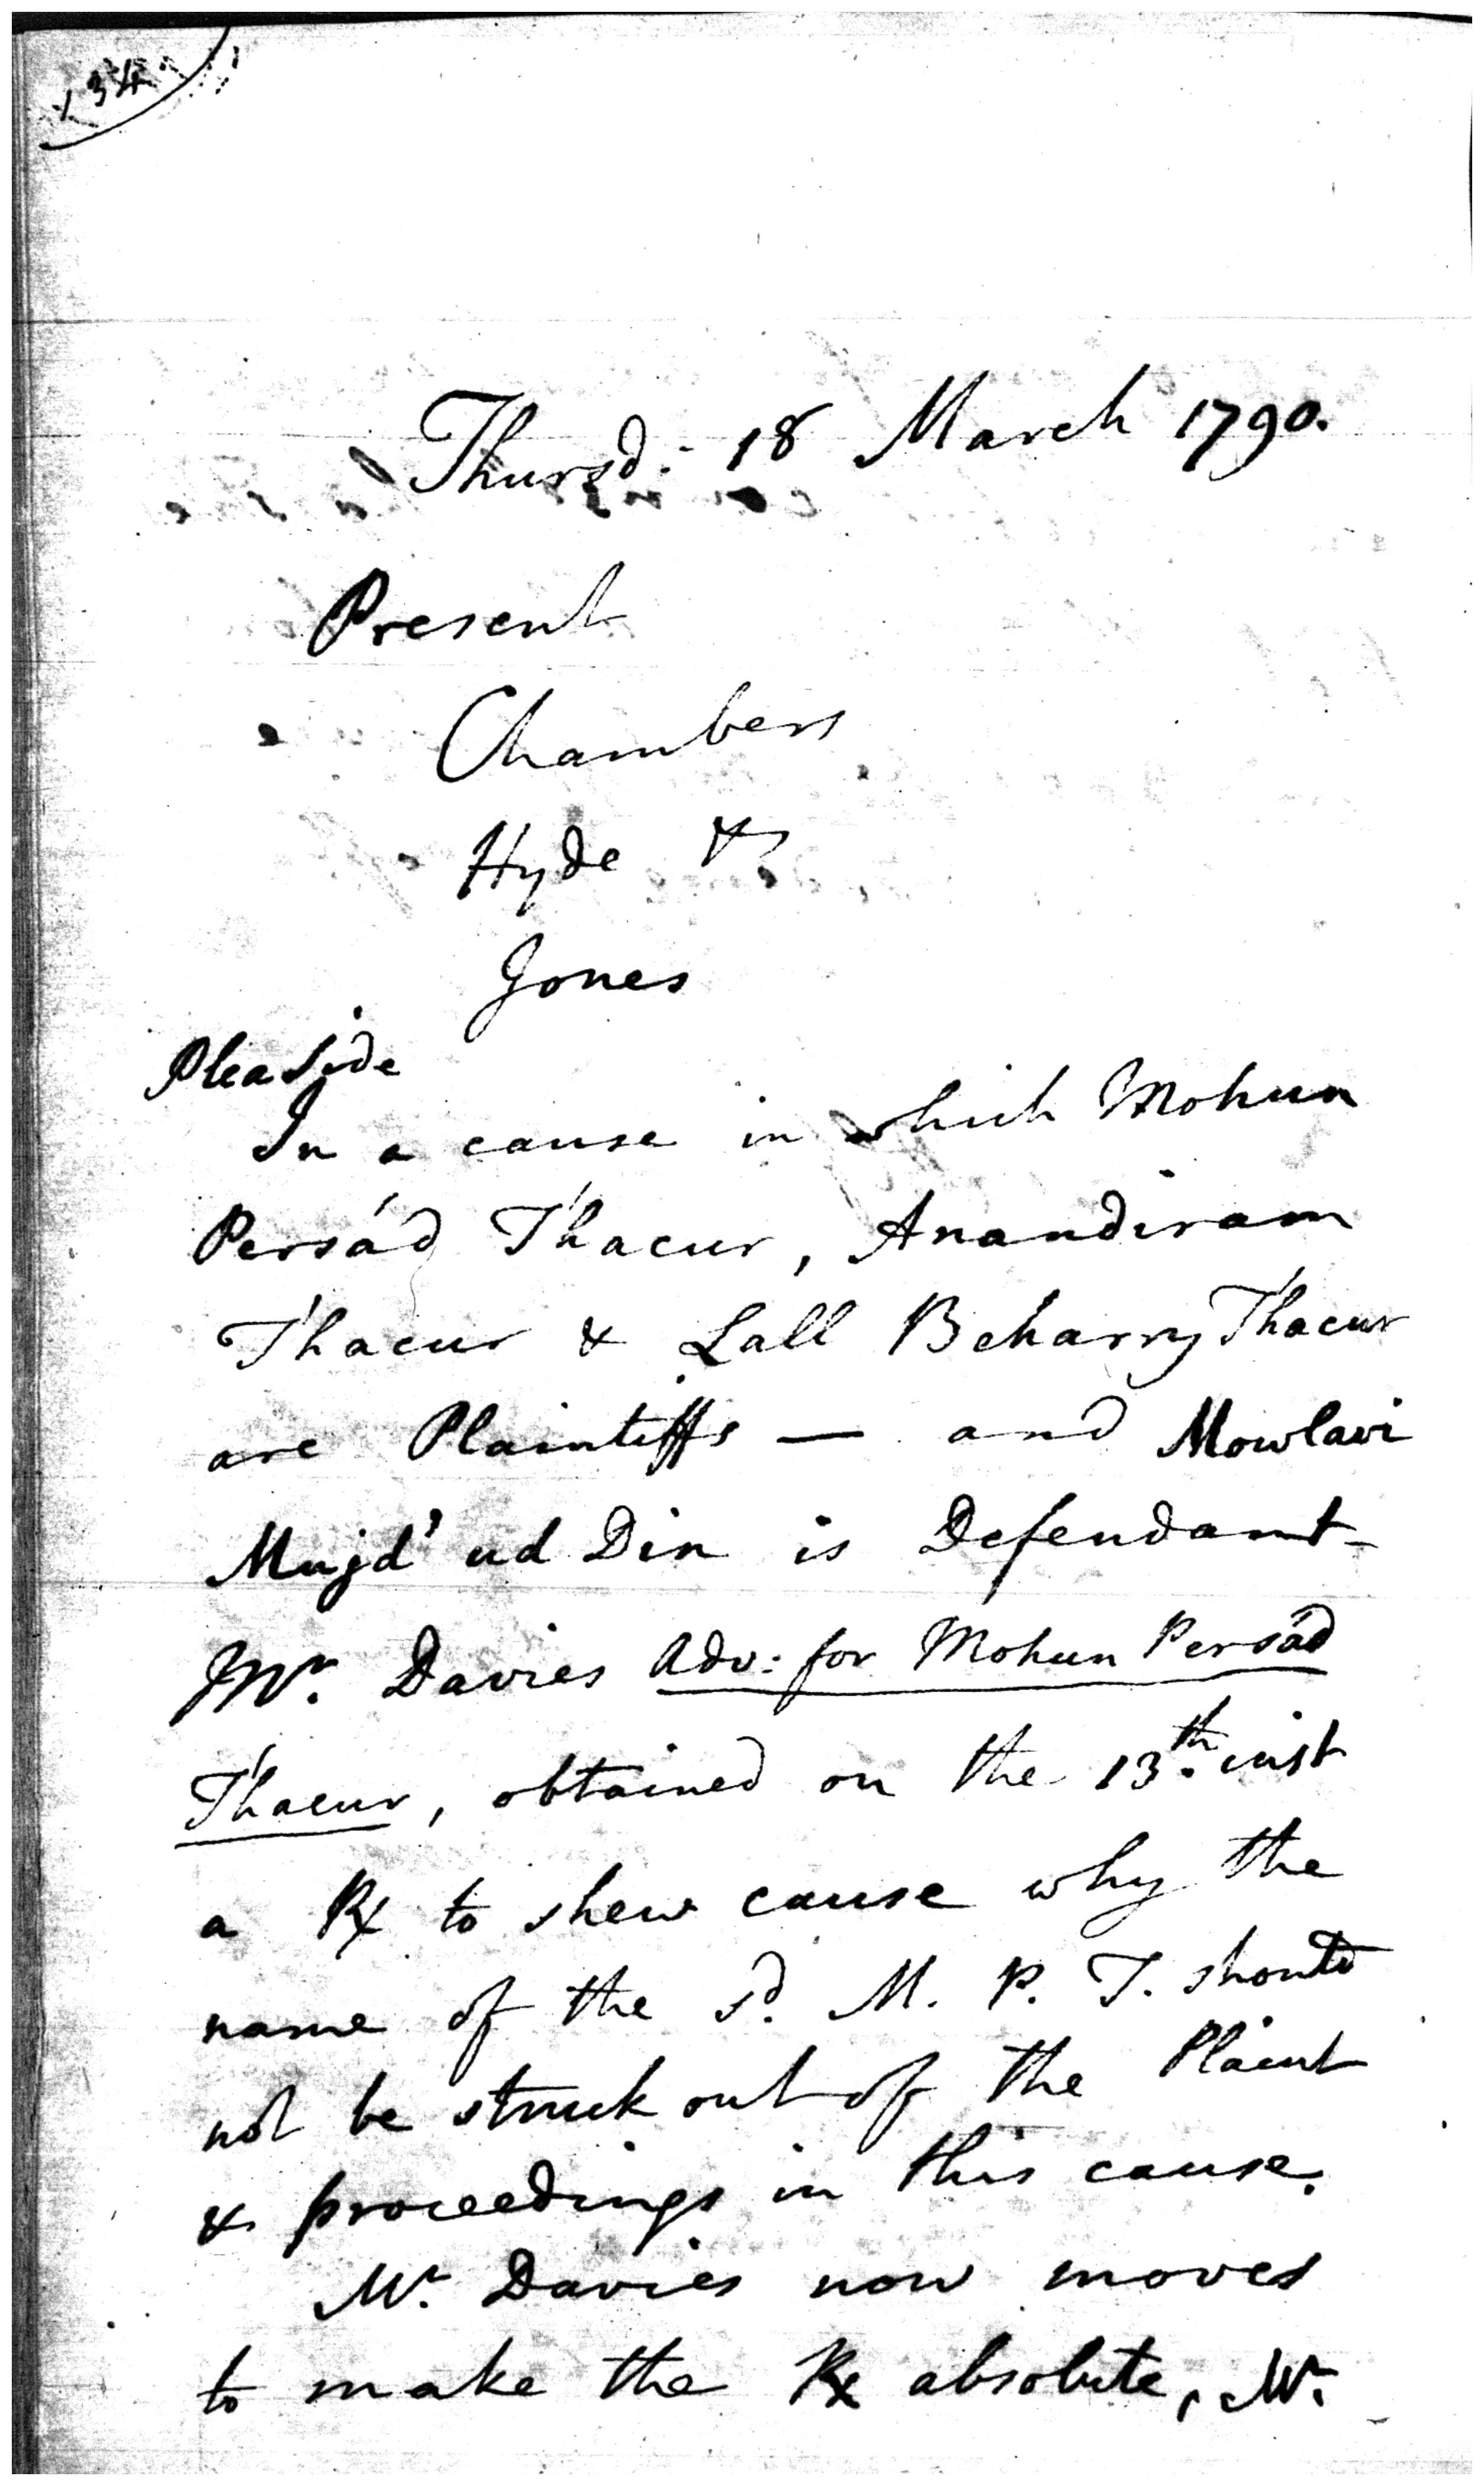 134
Thursd: 18 March 1790.
Present
Chambers
Hyde &
Jones
Plea Side
In a cause in which Mohun
Persád Thacur, Anandiram
Thacur & Lall Beharry Thacur
are Plaintiffs — and Mowlavi
Mujd' ud Din is Defendant –
Mr. Davies Adv: for Mohun Persád
Thacur, obtained on the 13th. inst
a Rx to shew cause why the
name of the sd. M. P. T. should
not be struck out of the Plaint
& proceedings in this cause.
Mr. Davies now moves
to make the Rx absolute, Mr.